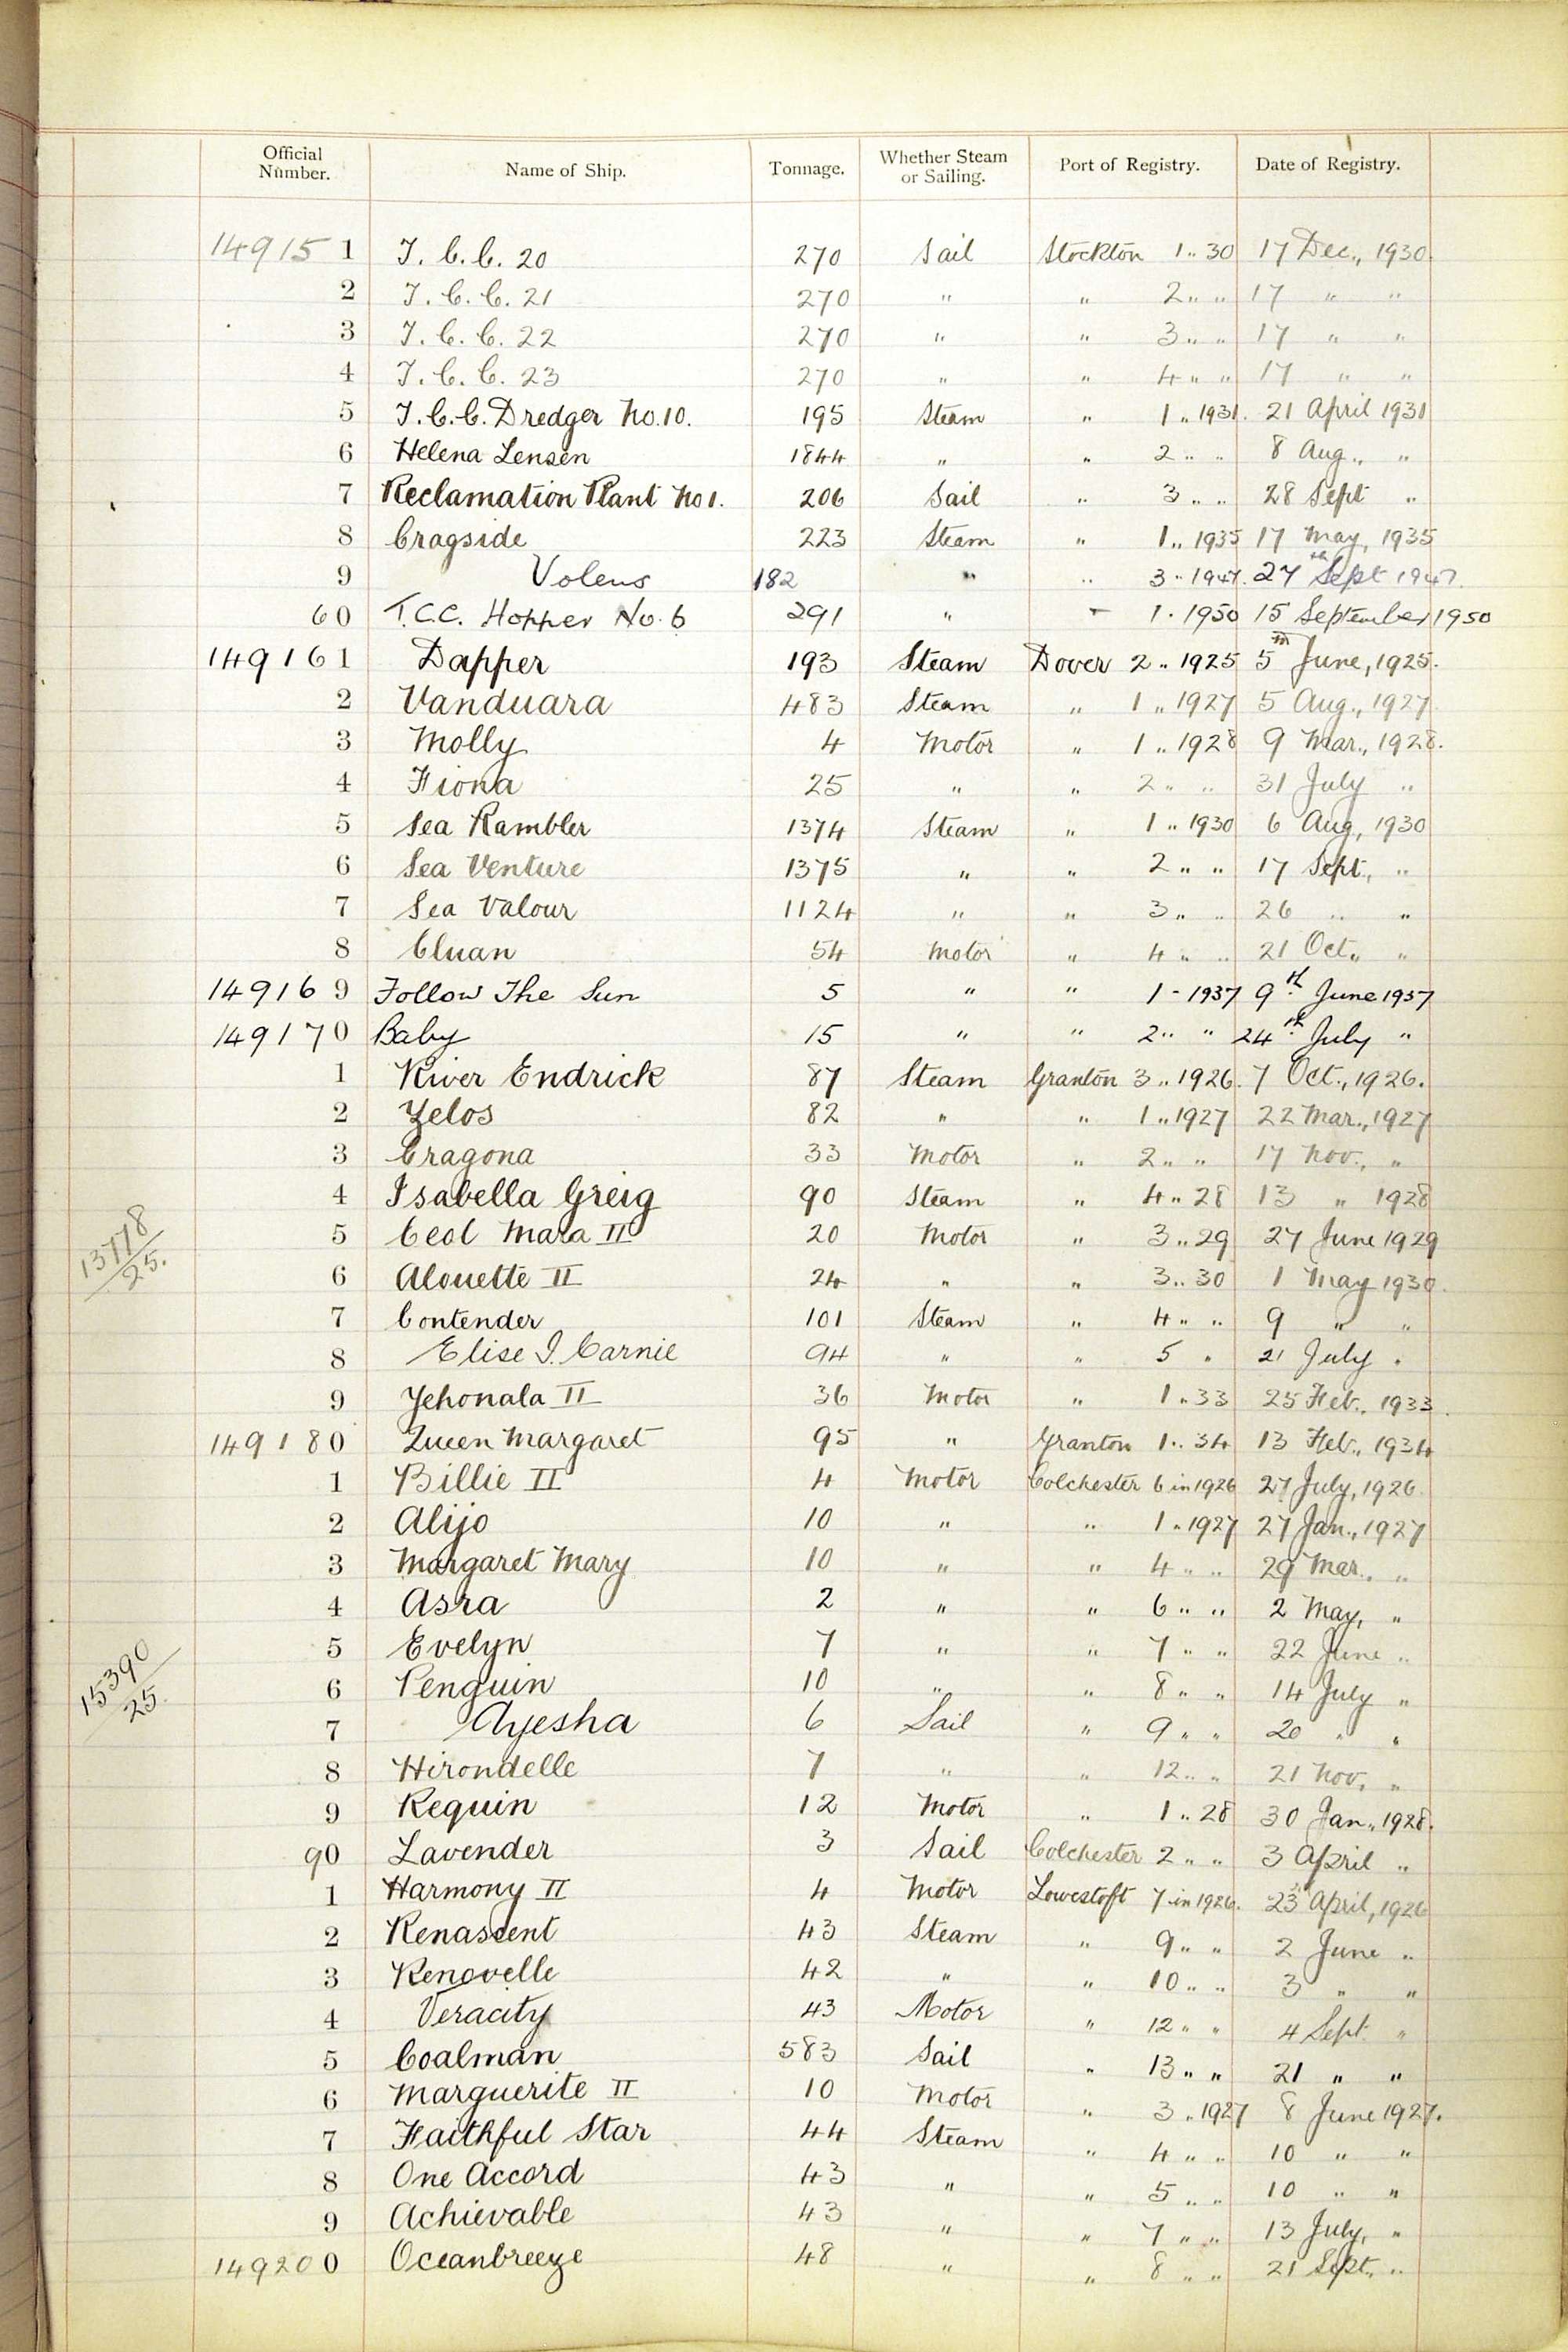 Official Number. Name of Ship. Tonnage. Whether Steam or Sailing. Port of Registry. Date of Registry.
149151 T. C. C. 20 270 Sail Stockton 1 " 30 17 Dec., 1930.
2 T. C. C. 21 270 " " 2 " " 17 " "
3 T. C. C. 22 270 " " 3 " " 17 " "
4 T. C. C. 23 270 " " 4 " " 17 " "
5 T. C. C. Dredger No. 10. 195 Steam " 1 " 1931. 21 April 1931
6 Helena Lensen 1844 " " 2 " " 8 Aug., "
7 Reclamation Plant No 1. 206 Sail " 3 " " 28 Sept "
8 Cragside 223 Steam " 1 " 1935 17 May, 1935
9 Volens 182 " " 3 " 1947. 27th Sept 1947.
60 T.C.C. Hopper No. 6 291 " " 1 . 1950 15 September 1950
149161 Dapper 193 Steam Dover 2 " 1925 5th June, 1925.
2 Vanduara 483 Steam " 1 " 1927 5 Aug., 1927.
3 Molly 4 Motor " 1 " 1928 9 Mar., 1928.
4 Fiona 25 " " 2 " " 31 July "
5 Sea Rambler 1374 Steam " 1 " 1930 6 Aug, 1930
6 Sea Venture 1375 " " 2 " " 17 Sept., "
7 Sea Valour 1124 " " 3 " " 26 " "
8 Cluan 54 Motor " 4 " " 21 Oct., "
149169 Follow The Sun 5 " " 1 - 1937 9th June 1937
149170 Baby 15 " " 2 " " 24th July "
1 River Endrick 87 Steam Granton 3 " 1926. 7 Oct., 1926.
2 Zelos 82 " " 1 " 1927 22 Mar., 1927
3 Cragona 33 Motor " 2 " " 17 Nov., "
4 Isabella Greig 90 Steam " 4 " 28 13 " 1928
5 Ceol Mara II 20 Motor " 3 " 29 27 June 1929
6 Alouette II 24 " " 3 " 30 1 May 1930.
7 Contender 101 Steam " 4 " " 9 " "
13778/25.
8 Elise I. Carnie 94 " " 5 " 21 July "
9 Yehonala II 36 Motor " 1 " 33 25 Feb., 1933.
149180 Queen Margaret 95 " Granton 1 " 34 13 Feb., 1934
1 Billie II 4 Motor Colchester 6 in 1926 27 July, 1926.
2 Alijo 10 " " 1 " 1927 27 Jan., 1927
3 Margaret Mary 10 " " 4 " " 29 Mar. "
4 Asra 2 " " 6 " " 2 May, "
5 Evelyn 7 " " 7 " " 22 June "
6 Penguin 10 " " 8 " " 14 July "
15390/25.
7 Ayesha 6 Sail " 9 " " 20 " "
8 Hirondelle 7 " " 12 " " 21 Nov. "
9 Requin 12 Motor " 1 " 28 30 Jan., 1928.
90 Lavender 3 Sail Colchester 2 " " 3 April "
1 Harmony II 4 Motor Lowestoft 7 in 1926. 23 April, 1926
2 Renascent 43 Steam " 9 " " 2 June "
3 Renovelle 42 " " 10 " " 3 " "
4 Veracity 43 Motor " 12 " " 4 Sept. "
5 Coalman 583 Sail " 13 " " 21 " "
6 Marguerite II 10 Motor " 3 " 1927 8 June 1927.
7 Faithful Star 44 Steam " 4 " " 10 " "
8 One Accord 43 " " 5 " " 10 " "
9 Achievable 43 " " 7 " " 13 July, "
149200 Oceanbreeze 48 " " 8 " " 21 Sept., "